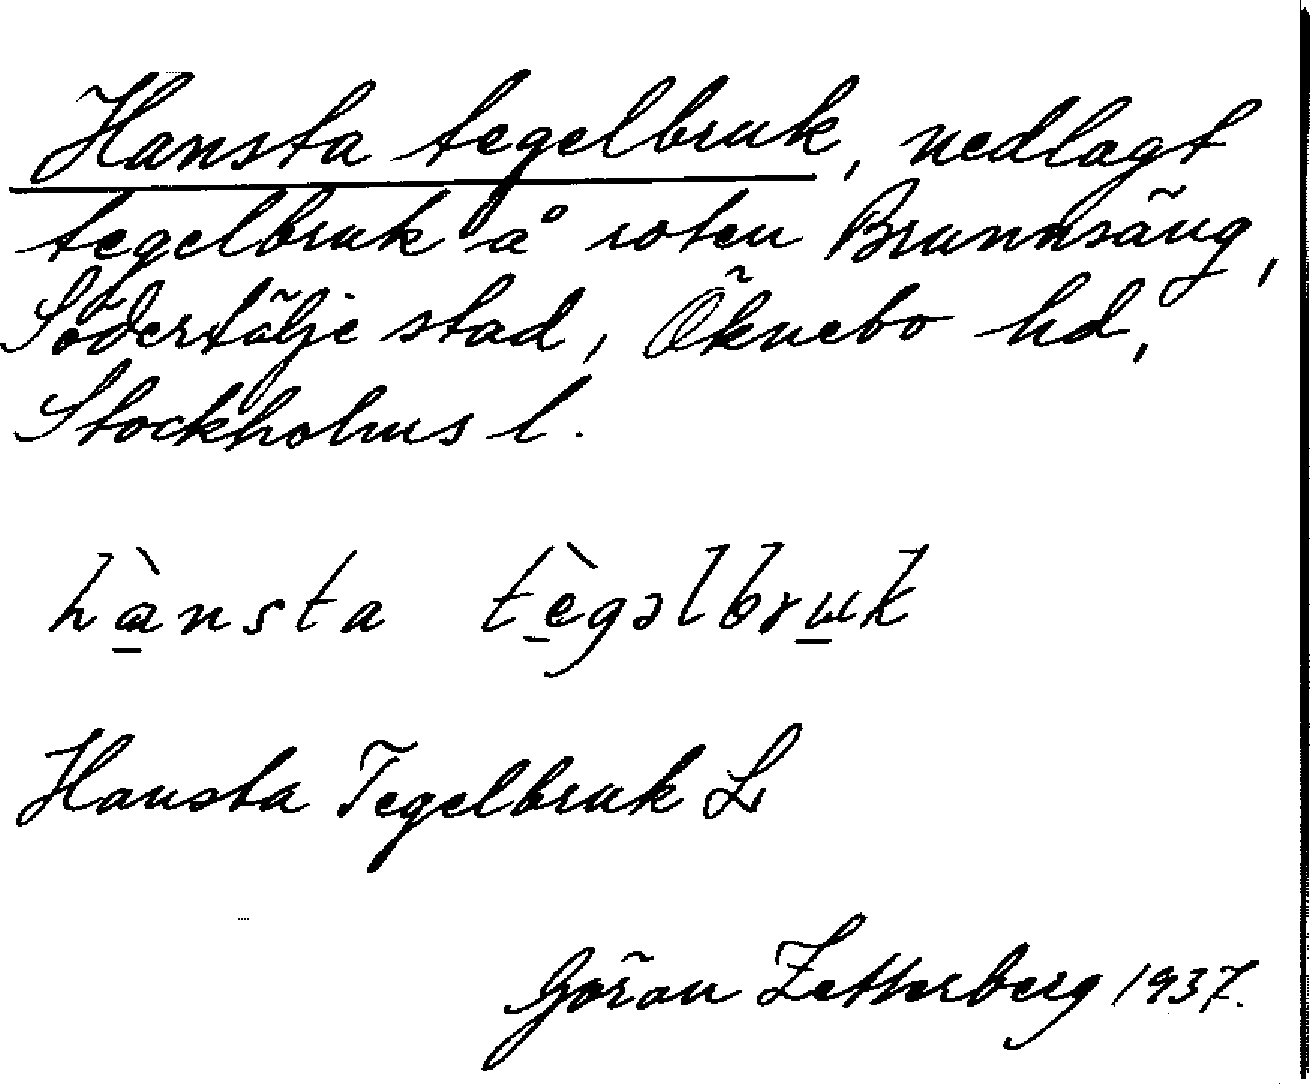 Hansta tegelbruk, nedlagt
tegelbruk å roten Brunnsäng,
Södertälje stad, Öknebo hd,
Stockholms l.
hànsta tègəlbruk
Hansta Tegelbruk L
Göran Zetterberg 1937.